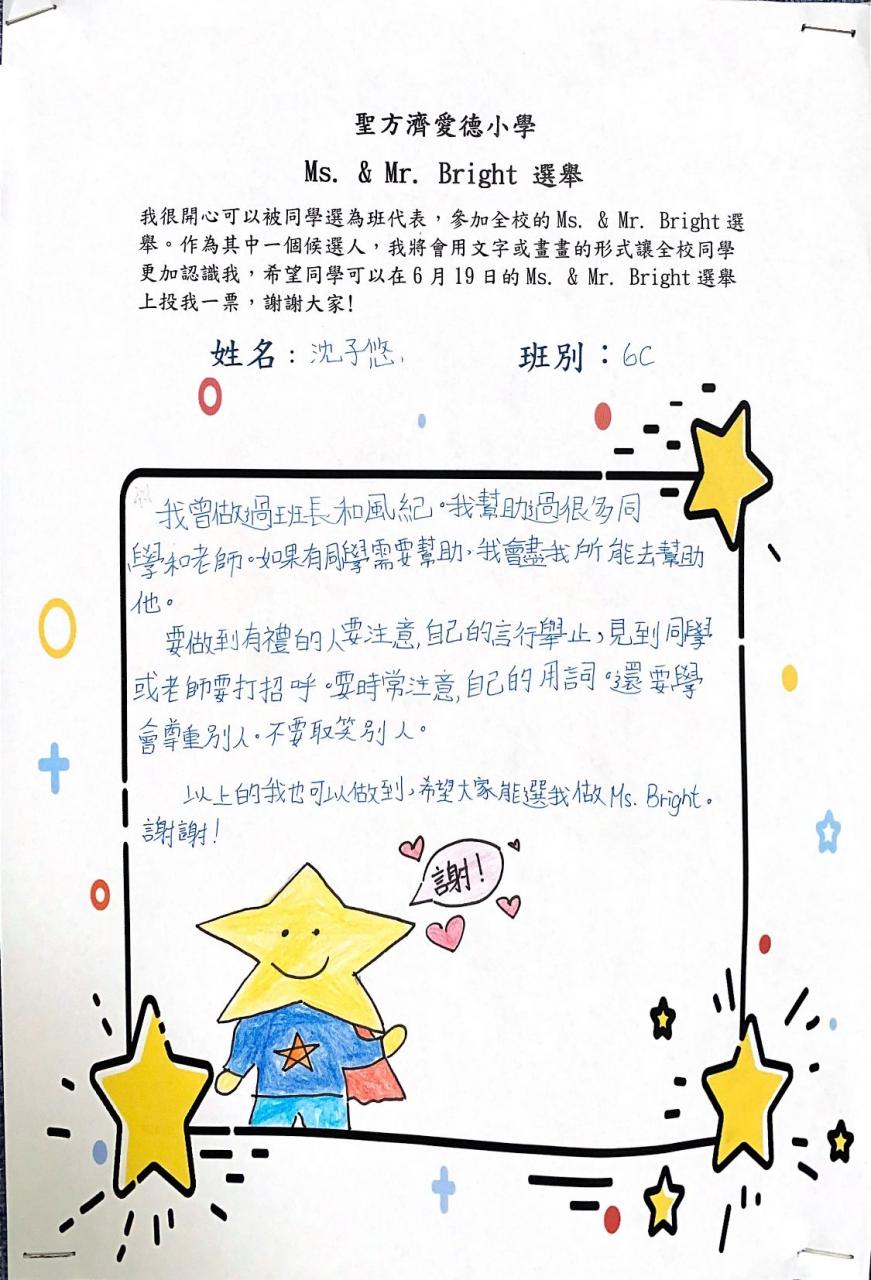 聖方濟愛德小學
Ms. & Mr. Bright 選舉
我很開心可以被同學選為班代表，參加全校的 Ms. & Mr. Bright 選
舉。作為其中一個候選人，我將會用文字或畫畫的形式讓全校同學
更加認識我，希望同學可以在 6 月 19 日的 Ms. & Mr. Bright 選舉
上投我一票，謝謝大家!
姓名：沈子悠 班別：6C
我曾做過班長和風紀。我幫助過很多同
學和老師。如果有同學需要幫助，我會盡我所能去幫助
他。
要做到有禮的人要注意自己的言行舉止，見到同學
或老師要打招呼。要時常注意自己的用詞。還要學
會尊重別人。不要取笑別人。
以上的我也可以做到，希望大家能選我做 Ms. Bright。
謝謝！
謝！